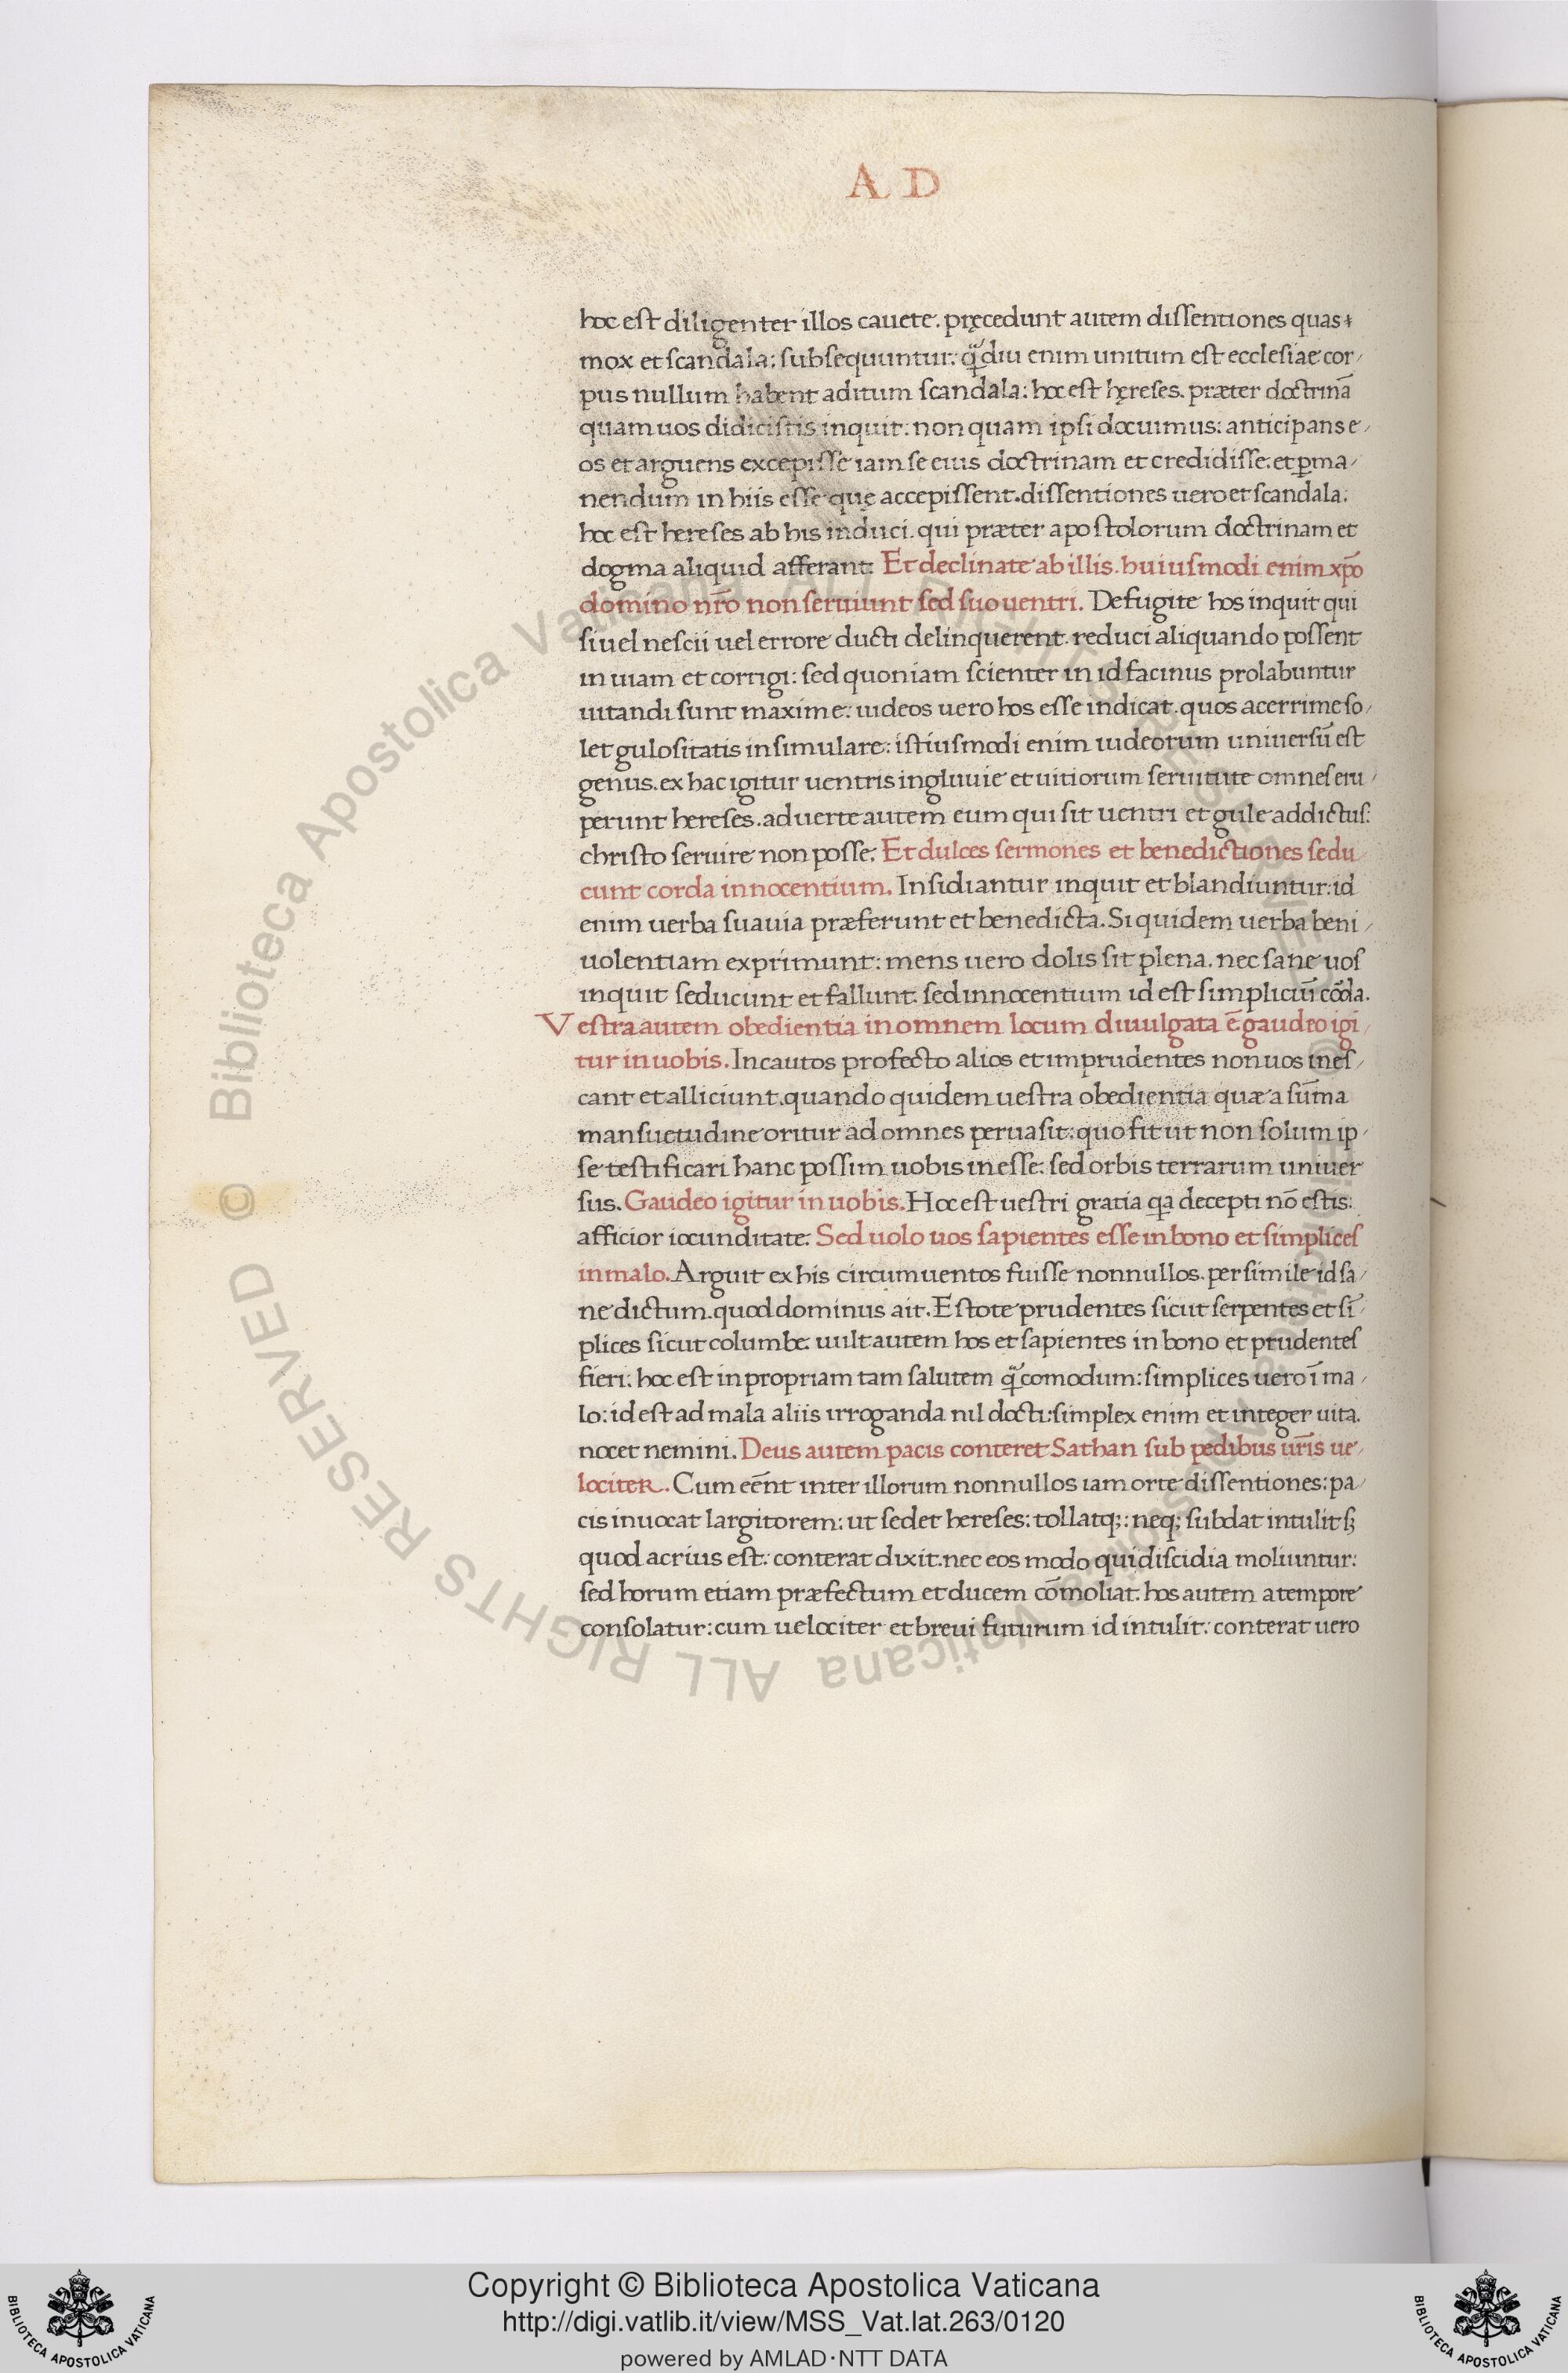 A D
hoc est diligenter illos cauete. pręcedunt autem dissentiones quas
mox et scandala: subsequuntur: q̃diu enim unitum est ecclesiae cor/
pus nullum habent aditum scandala: hoc est hęreses. præter doctrinã
quam uos didicistis inquit: non quam ipsi docuimus: anticipans e/
os et arguens excepisse iam se eius doctrinam et credidisse: et ꝑma/
nendum in hiis esse quę accepissent. dissentiones uero et scandala:
hoc est hereses ab his induci. qui præter apostolorum doctrinam et
dogma aliquid afferant: Et declinate ab illis. huiusmodi enim xp̃o
domino nr̃o non seruiunt sed suo uentri. Defugite hos inquit qui
si uel nescii uel errore ducti delinquerent. reduci aliquando possent
in uiam et corrigi: sed quoniam scienter in id facinus prolabuntur
uitandi sunt maxime: iudeos uero hos esse indicat. quos acerrime so/
let gulositatis insimulare: istiusmodi enim iudeorum uniuersũ est
genus. ex hac igitur uentris ingluuie et uitiorum seruitute omnes eru/
perunt hereses. aduerte autem eum qui sit uentri et gule addictus:
christo seruire non posse: Et dulces sermones et benedictiones sedu
cunt corda innocentium. Insidiantur inquit et blandiuntur: id
enim uerba suauia præferunt et benedicta. Si quidem uerba beni/
uolentiam exprimunt: mens uero dolis sit plena. nec sane uos
inquit seducunt et fallunt. sed innocentium id est simpliciũ corda.
Vestra autem obedientia in omnem locum diuulgata ẽ gaudeo igi/
tur in uobis. Incautos profecto alios et imprudentes non uos ines/
cant et alliciunt. quando quidem uestra obedientia quæ a sũma
mansuetudine oritur ad omnes peruasit: quo fit ut non solum ip/
se testificari hanc possim uobis inesse: sed orbis terrarum uniuer
sus. Gaudeo igitur in uobis. Hoc est uestri gratia qa decepti nõ estis:
afficior iocunditate: Sed uolo uos sapientes esse in bono et simplices
in malo. Arguit ex his circumuentos fuisse nonnullos. per simile id sa/
ne dictum. quod dominus ait. Estote prudentes sicut serpentes et sĩ/
plices sicut columbe. uult autem hos et sapientes in bono et prudentes
fieri: hoc est in propriam tam salutem q̃ comodum: simplices uero ĩ ma/
lo: id est ad mala aliis irroganda nil docti: simplex enim et integer uita.
nocet nemini. Deus autem pacis conteret Sathan sub pedibus ur̃is ue/
lociter. Cum eẽnt inter illorum nonnullos iam orte dissentiones: pa/
cis inuocat largitorem: ut sedet hereses: tollatq;: neq; subdat intulit sꝫ
quod acrius est: conterat dixit. nec eos modo qui discidia moliuntur:
sed horum etiam præfectum et ducem cõmoliat. hos autem a tempore
consolatur: cum uelociter et breui futurum id intulit: conterat uero
© Biblioteca Apostolica Vaticana ALL RIGHTS RESERVED
© Biblioteca Apostolica Vaticana ALL RIGHTS RESERVED
Copyright © Biblioteca Apostolica Vaticana
http://digi.vatlib.it/view/MSS_Vat.lat.263/0120
powered by AMLAD·NTT DATA
BIBLIOTECA APOSTOLICA VATICANA
BIBLIOTECA APOSTOLICA VATICANA